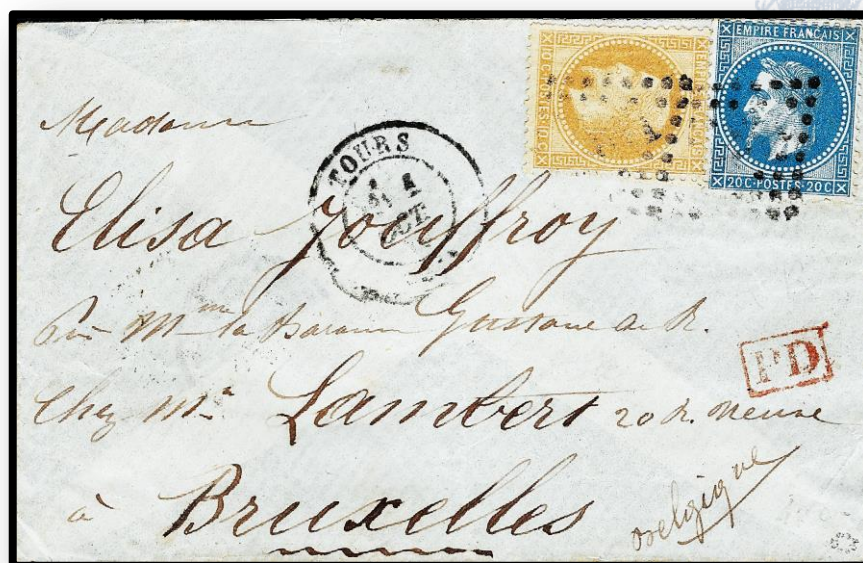 EMPIRE FRANÇAIS
20 C · POSTES · 20 C
10 C · POSTES · 10 C
EMPIRE FRANÇAIS
TOURS
Madame
Elisa Jouffroy
Pour Mme la Baronne Gustave de R.
PD
Chez Mr Lambert 20 R. Neuve
à Bruxelles
Belgique